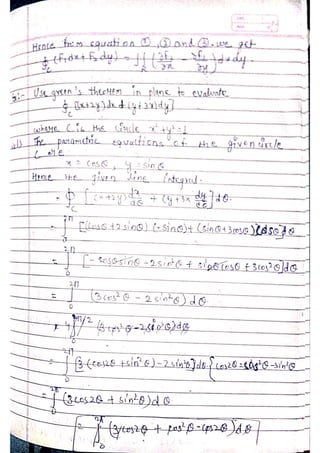 Hence from equation ①, ② and ③, we get
∮_C (F₁dx + F₂dy) = ∬_R (∂F₂/∂x - ∂F₁/∂y) dx dy.
Use green's theorem in plane to evaluate
∮_C [(x+2y)dx + (y+3x)dy]
where C is the circle x²+y²=1
The parametric equations of the given circle
C are
x = cosθ, y = sinθ
Hence the given line integral.
= ∮ [(x+2y) dx/dθ + (y+3x) dy/dθ] dθ.
= ∫₀^2π [(cosθ+2sinθ)(-sinθ) + (sinθ+3cosθ)(cosθ)] dθ
= ∫₀^2π [-cosθsinθ - 2sin²θ + sinθcosθ + 3cos²θ] dθ
= ∫₀^2π (3cos²θ - 2sin²θ) dθ
4∫₀^π/2 (3cos²θ - 2sin²θ) dθ
= ∫₀^2π [3(cos2θ + sin²θ) - 2sin²θ] dθ. {cos2θ = cos²θ - sin²θ
= ∫₀^2π (3cos2θ + sin²θ) dθ
= ∫₀^2π (3cos2θ + cos²θ - cos2θ) dθ